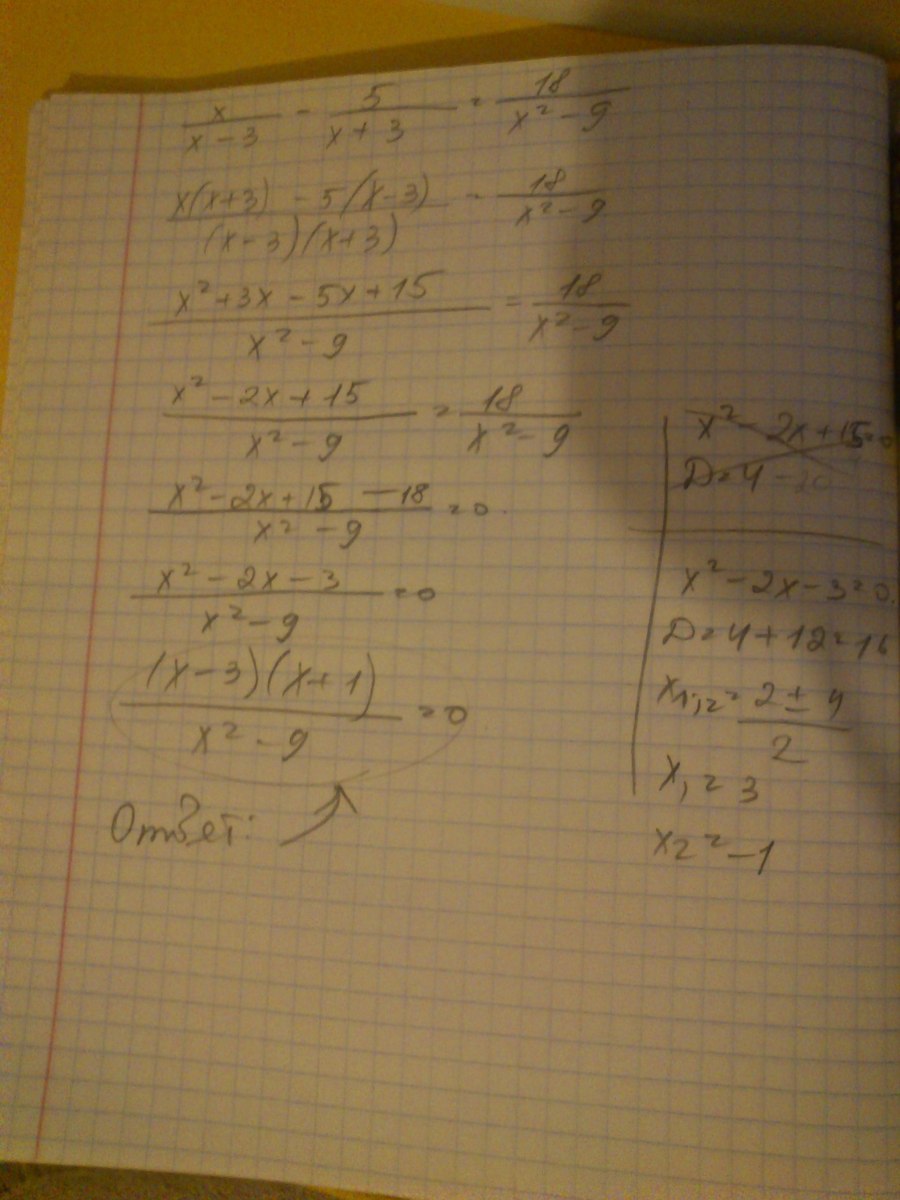 x/(x-3) - 5/(x+3) = 18/(x²-9)
(x(x+3) - 5(x-3))/((x-3)(x+3)) - 18/(x²-9)
(x²+3x-5x+15)/(x²-9) = 18/(x²-9)
(x²-2x+15)/(x²-9) = 18/(x²-9)
(x²-2x+15-18)/(x²-9) = 0.
(x²-2x-3)/(x²-9) = 0
((x-3)(x+1))/(x²-9) = 0
Ответ:
x²-2x+15=0
D=4-20
x²-2x-3=0.
D=4+12=16
x₁;₂=(2±4)/2
x₁=3
x₂=-1